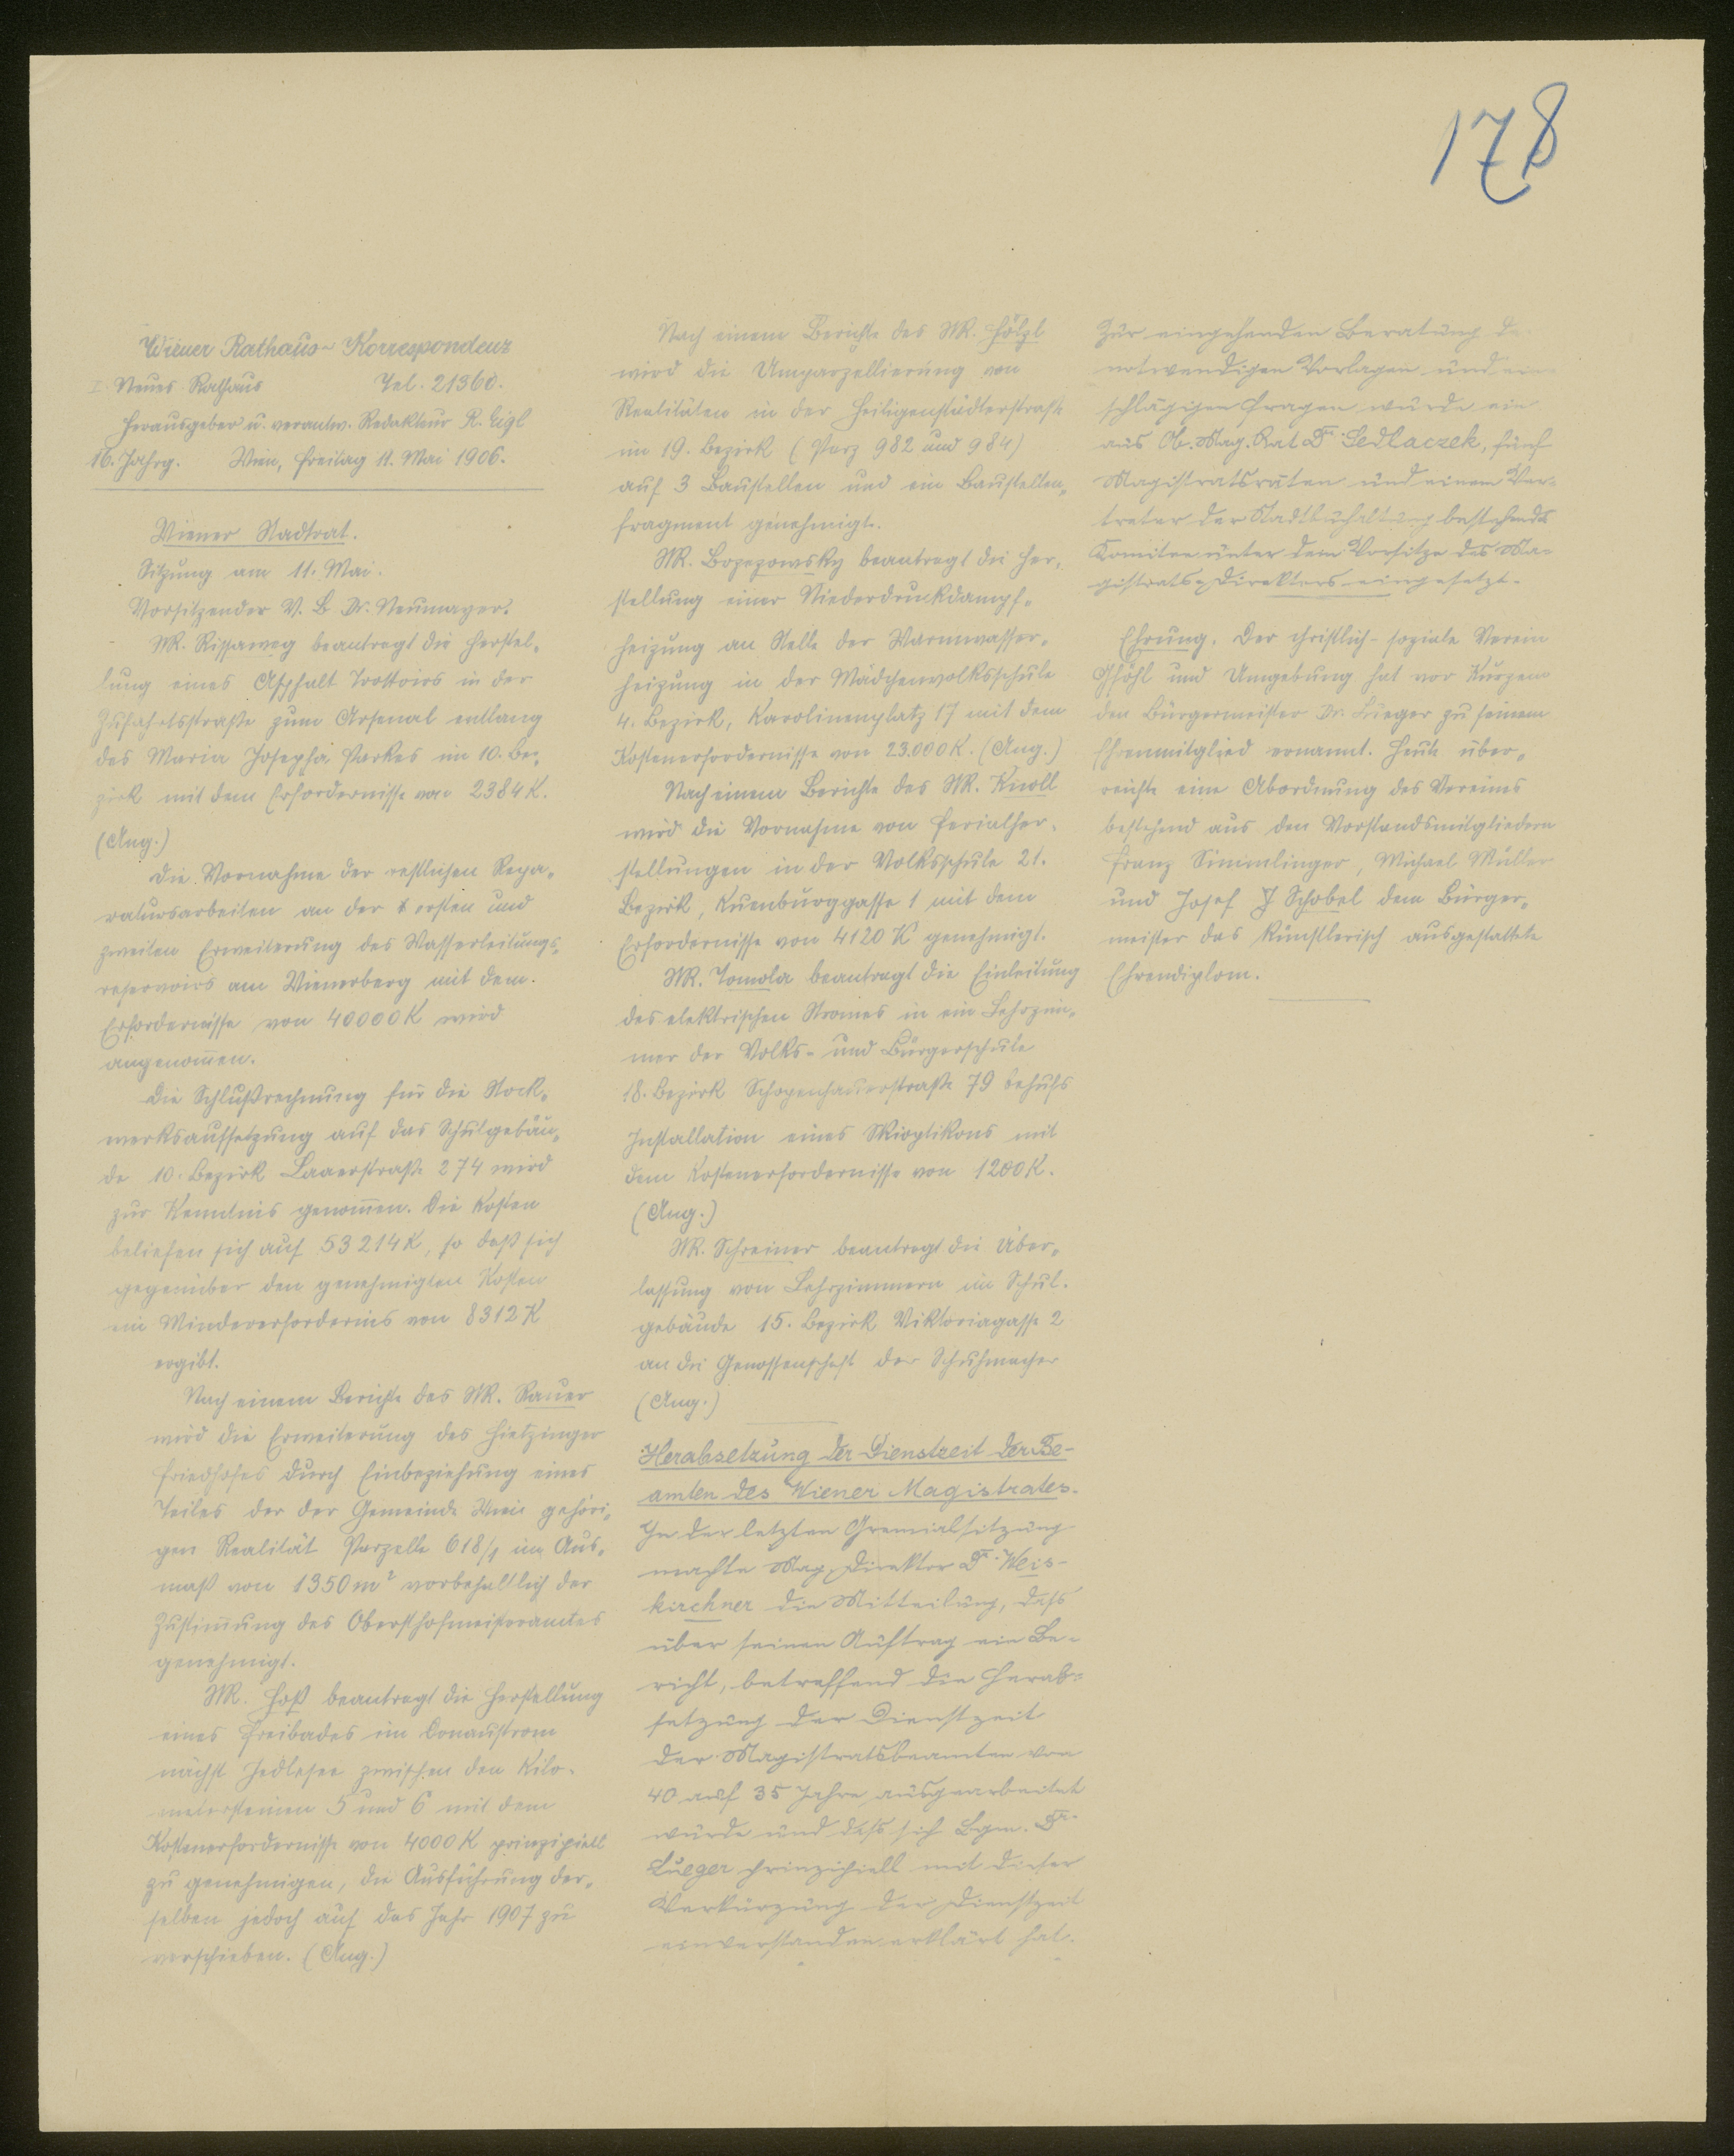 178
Wiener Rathaus-Korrespondenz
I. Neues Rathaus Tel. 21360.
Herausgeber u. verantw. Redakteur R. Eigl
16. Jahrg. Wien, Freitag 11. Mai 1906.
Wiener Stadtrat.
Sitzung am 11. Mai.
Vorsitzender V. B. Dr. Neumayer.
StR. Rissaweg beantragt die Herstel-
lung eines Asphalt Trottoirs in der
Zufahrtsstraße zum Arsenal entlang
des Maria Josepha Parkes im 10. Be-
zirk mit dem Erfordernisse von 2384 K.
(Ang.)
Die Vornahme der restlichen Repa-
raturarbeiten an der ersten und
zweiten Erweiterung des Wasserleitungs-
reservoirs am Wienerberg mit dem
Erfordernisse von 40000 K wird
angenommen.
Die Schlußrechnung für die Stock-
werksaufsetzung auf das Schulgebäu-
de 10. Bezirk Laaerstraße 274 wird
zur Kenntnis genommen. Die Kosten
beliefen sich auf 53214 K, so daß sich
gegenüber den genehmigten Kosten
ein Mindererfordernis von 8312 K
ergibt.
Nach einem Berichte des StR. Rauer
wird die Erweiterung des Hietzinger
Friedhofes durch Einbeziehung eines
Teiles der der Gemeinde Wien gehöri-
gen Realität Parzelle 618/1 im Aus-
maß von 1350 m² vorbehaltlich der
Zustimmung des Obersthofmeisteramtes
genehmigt.
StR. Hoß beantragt die Herstellung
eines Freibades im Donaustrom
nächst Jedlesee zwischen den Kilo-
metersteinen 5 und 6 mit dem
Kostenerfordernisse von 4000 K prinzipiell
zu genehmigen, die Ausführung der-
selben jedoch auf das Jahr 1907 zu
verschieben. (Ang.)
Nach einem Berichte des StR. Hölzl
wird die Umparzellierung von
Realitäten in der Heiligenstädterstraße
im 19. Bezirk (Parz 982 und 984)
auf 3 Baustellen und ein Baustellen-
fragment genehmigt.
StR. Bozezowsky beantragt die Her-
stellung einer Niederdruckdampf-
heizung an Stelle der Warmwasser-
heizung in der Mädchenvolksschule
4. Bezirk, Karolinenplatz 17 mit dem
Kostenerfordernisse von 23.000 K. (Ang.)
Nach einem Berichte des StR. Knoll
wird die Vornahme von Ferialher-
stellungen in der Volksschule 21.
Bezirk, Kuenburggasse 1 mit dem
Erfordernisse von 4120 K genehmigt.
StR. Tomola beantragt die Einleitung
des elektrischen Stromes in ein Lehrzim-
mer der Volks- und Bürgerschule
18. Bezirk Schopenhauerstraße 79 behufs
Installation eines Skioptikons mit
dem Kostenerfordernisse von 1200 K.
(Ang.)
StR. Schreiner beantragt die Über-
lassung von Lehrzimmern im Schul-
gebäude 15. Bezirk Viktoriagasse 2
an die Genossenschaft der Schuhmacher
(Ang.)
Herabsetzung der Dienstzeit der Be-
amten des Wiener Magistrates.
In der letzten Gremialsitzung
machte Mag. Direktor Dr. Weis-
kirchner die Mitteilung, dass
über seinen Auftrag ein Be-
richt, betreffend die Herab-
setzung der Dienstzeit
der Magistratsbeamten von
40 auf 35 Jahre ausgearbeitet
wurde und dass sich Bgm. Dr.
Lueger prinzipiell mit dieser
Verkürzung der Dienstzeit
einverstanden erklärt hat.
Zur eingehenden Beratung de
notwendigen Vorlagen und ein
schlägigen Fragen wurde ein
aus Ob. Mag. Rat Dr. Sedlaczek, fünf
Magistratsräten und einem Ver-
treter der Stadtbuchhaltung bestehendes
Komitee unter dem Vorsitze des Ma-
gistrats-Direktors eingesetzt.
Ehrung. Der christlich-soziale Verein
Gföhl und Umgebung hat vor Kurzem
den Bürgermeister Dr. Lueger zu seinem
Ehrenmitglied ernannt. Heute über-
reichte eine Abordnung des Vereines
bestehend aus den Vorstandsmitgliedern
Franz Simmlinger, Michael Müller
und Josef Schobel dem Bürger-
meister das künstlerisch ausgestattete
Ehrendiplom.